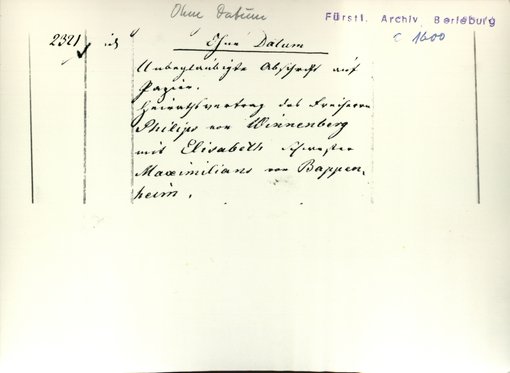 Ohne Datum
Fürstl. Archiv Berleburg
c 1600
2321 Ohne Datum
Unbeglaubigte Abschrift auf
Papier.
Heirathsvertrag des Freiherrn
Philips von Winnenberg
mit Elisabeth Schwester
Maximilians von Bappen,
heim.